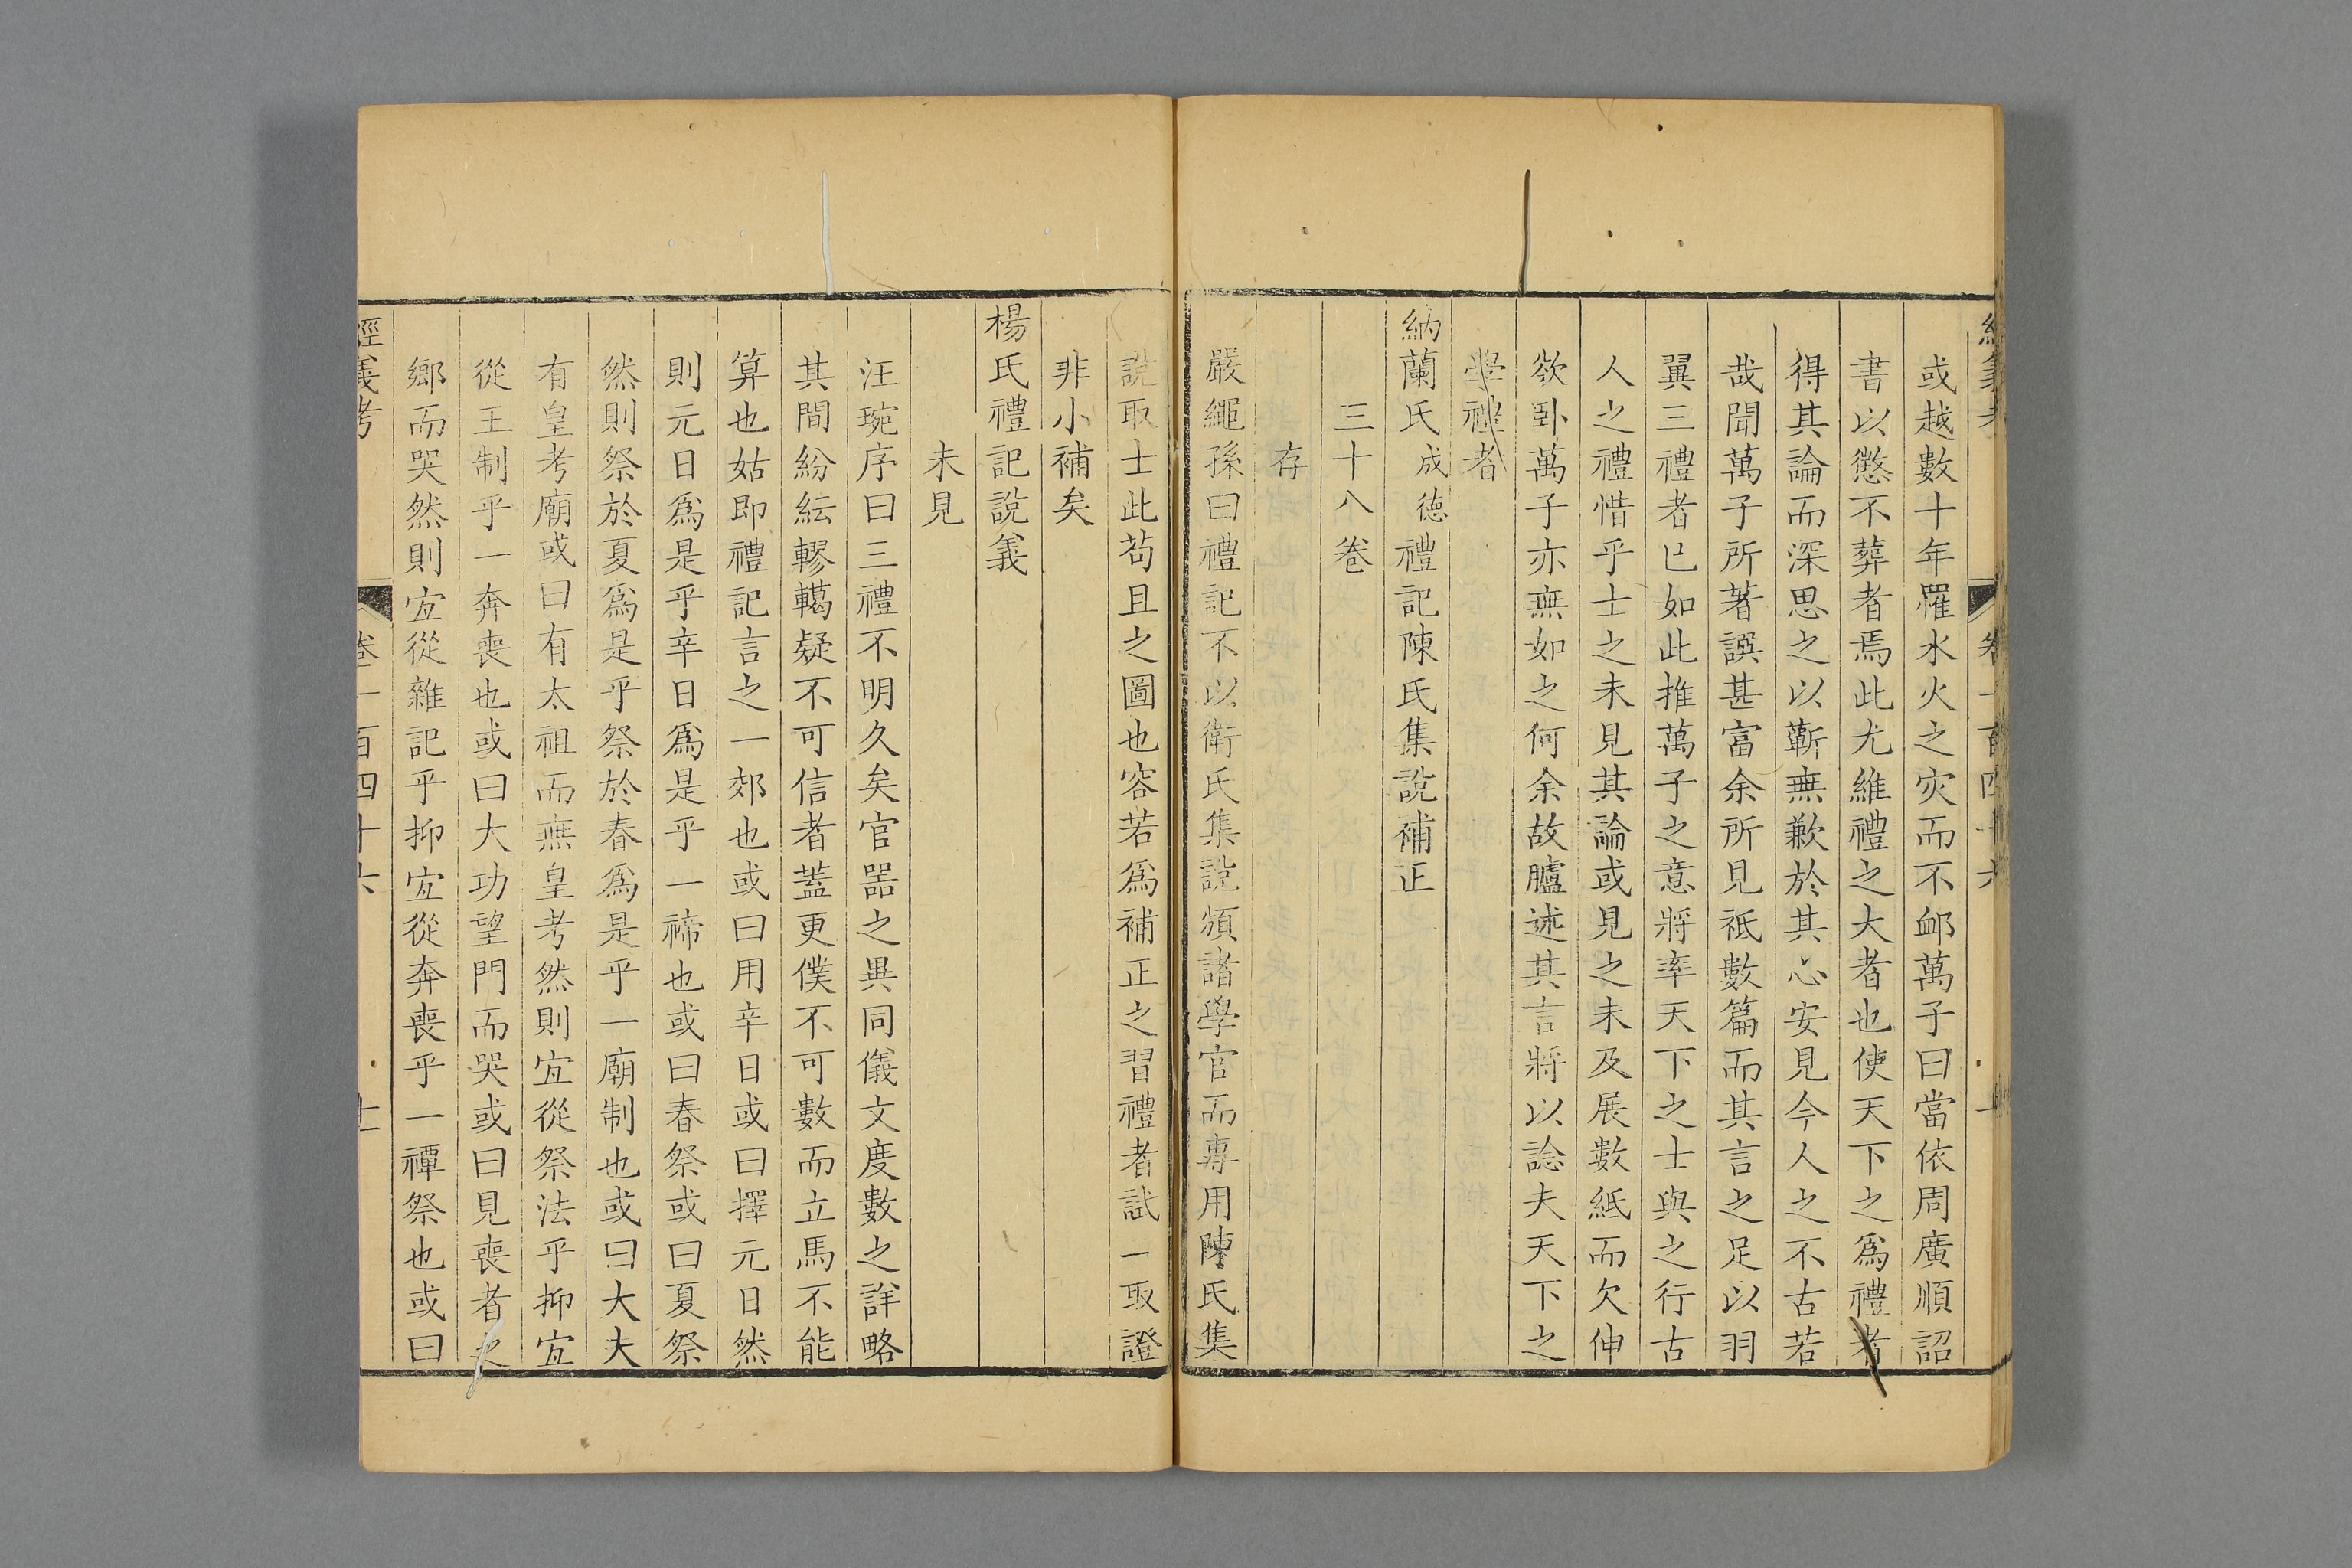 或越數十年罹水火之灾而不卹萬子曰當依周廣順詔
書以懲不葬者焉此尤維禮之大者也使天下之爲禮者
得其論而深思之以蘄無歉於其心安見今人之不古若
哉聞萬子所著譔甚富余所見衹數篇而其言之足以羽
翼三禮者已如此推萬子之意將率天下之士與之行古
人之禮惜乎士之未見其論或見之未及展數紙而欠伸
欲卧萬子亦無如之何余故臚述其言將以諗夫天下之
學禮者
納蘭氏成德禮記陳氏集說補正
三十八卷
存
嚴繩孫曰禮記不以衛氏集說頒諸學官而專用陳氏集
說取士此苟且之圖也容若爲補正之習禮者試一取證
非小補矣
楊氏禮記說義
未見
汪琬序曰三禮不明久矣官器之異同儀文度數之詳略
其間紛紜轇轕疑不可信者蓋更僕不可數而立馬不能
算也姑即禮記言之一郊也或曰用辛日或曰擇元日然
則元日爲是乎辛日爲是乎一禘也或曰春祭或曰夏祭
然則祭於夏爲是乎祭於春爲是乎一廟制也或曰大夫
有皇考廟或曰有太祖而無皇考然則宜從祭法乎抑宜
從王制乎一奔喪也或曰大功望門而哭或曰見喪者之
鄉而哭然則宜從雜記乎抑宜從奔喪乎一禫祭也或曰
經義考 卷一百四十六 十一